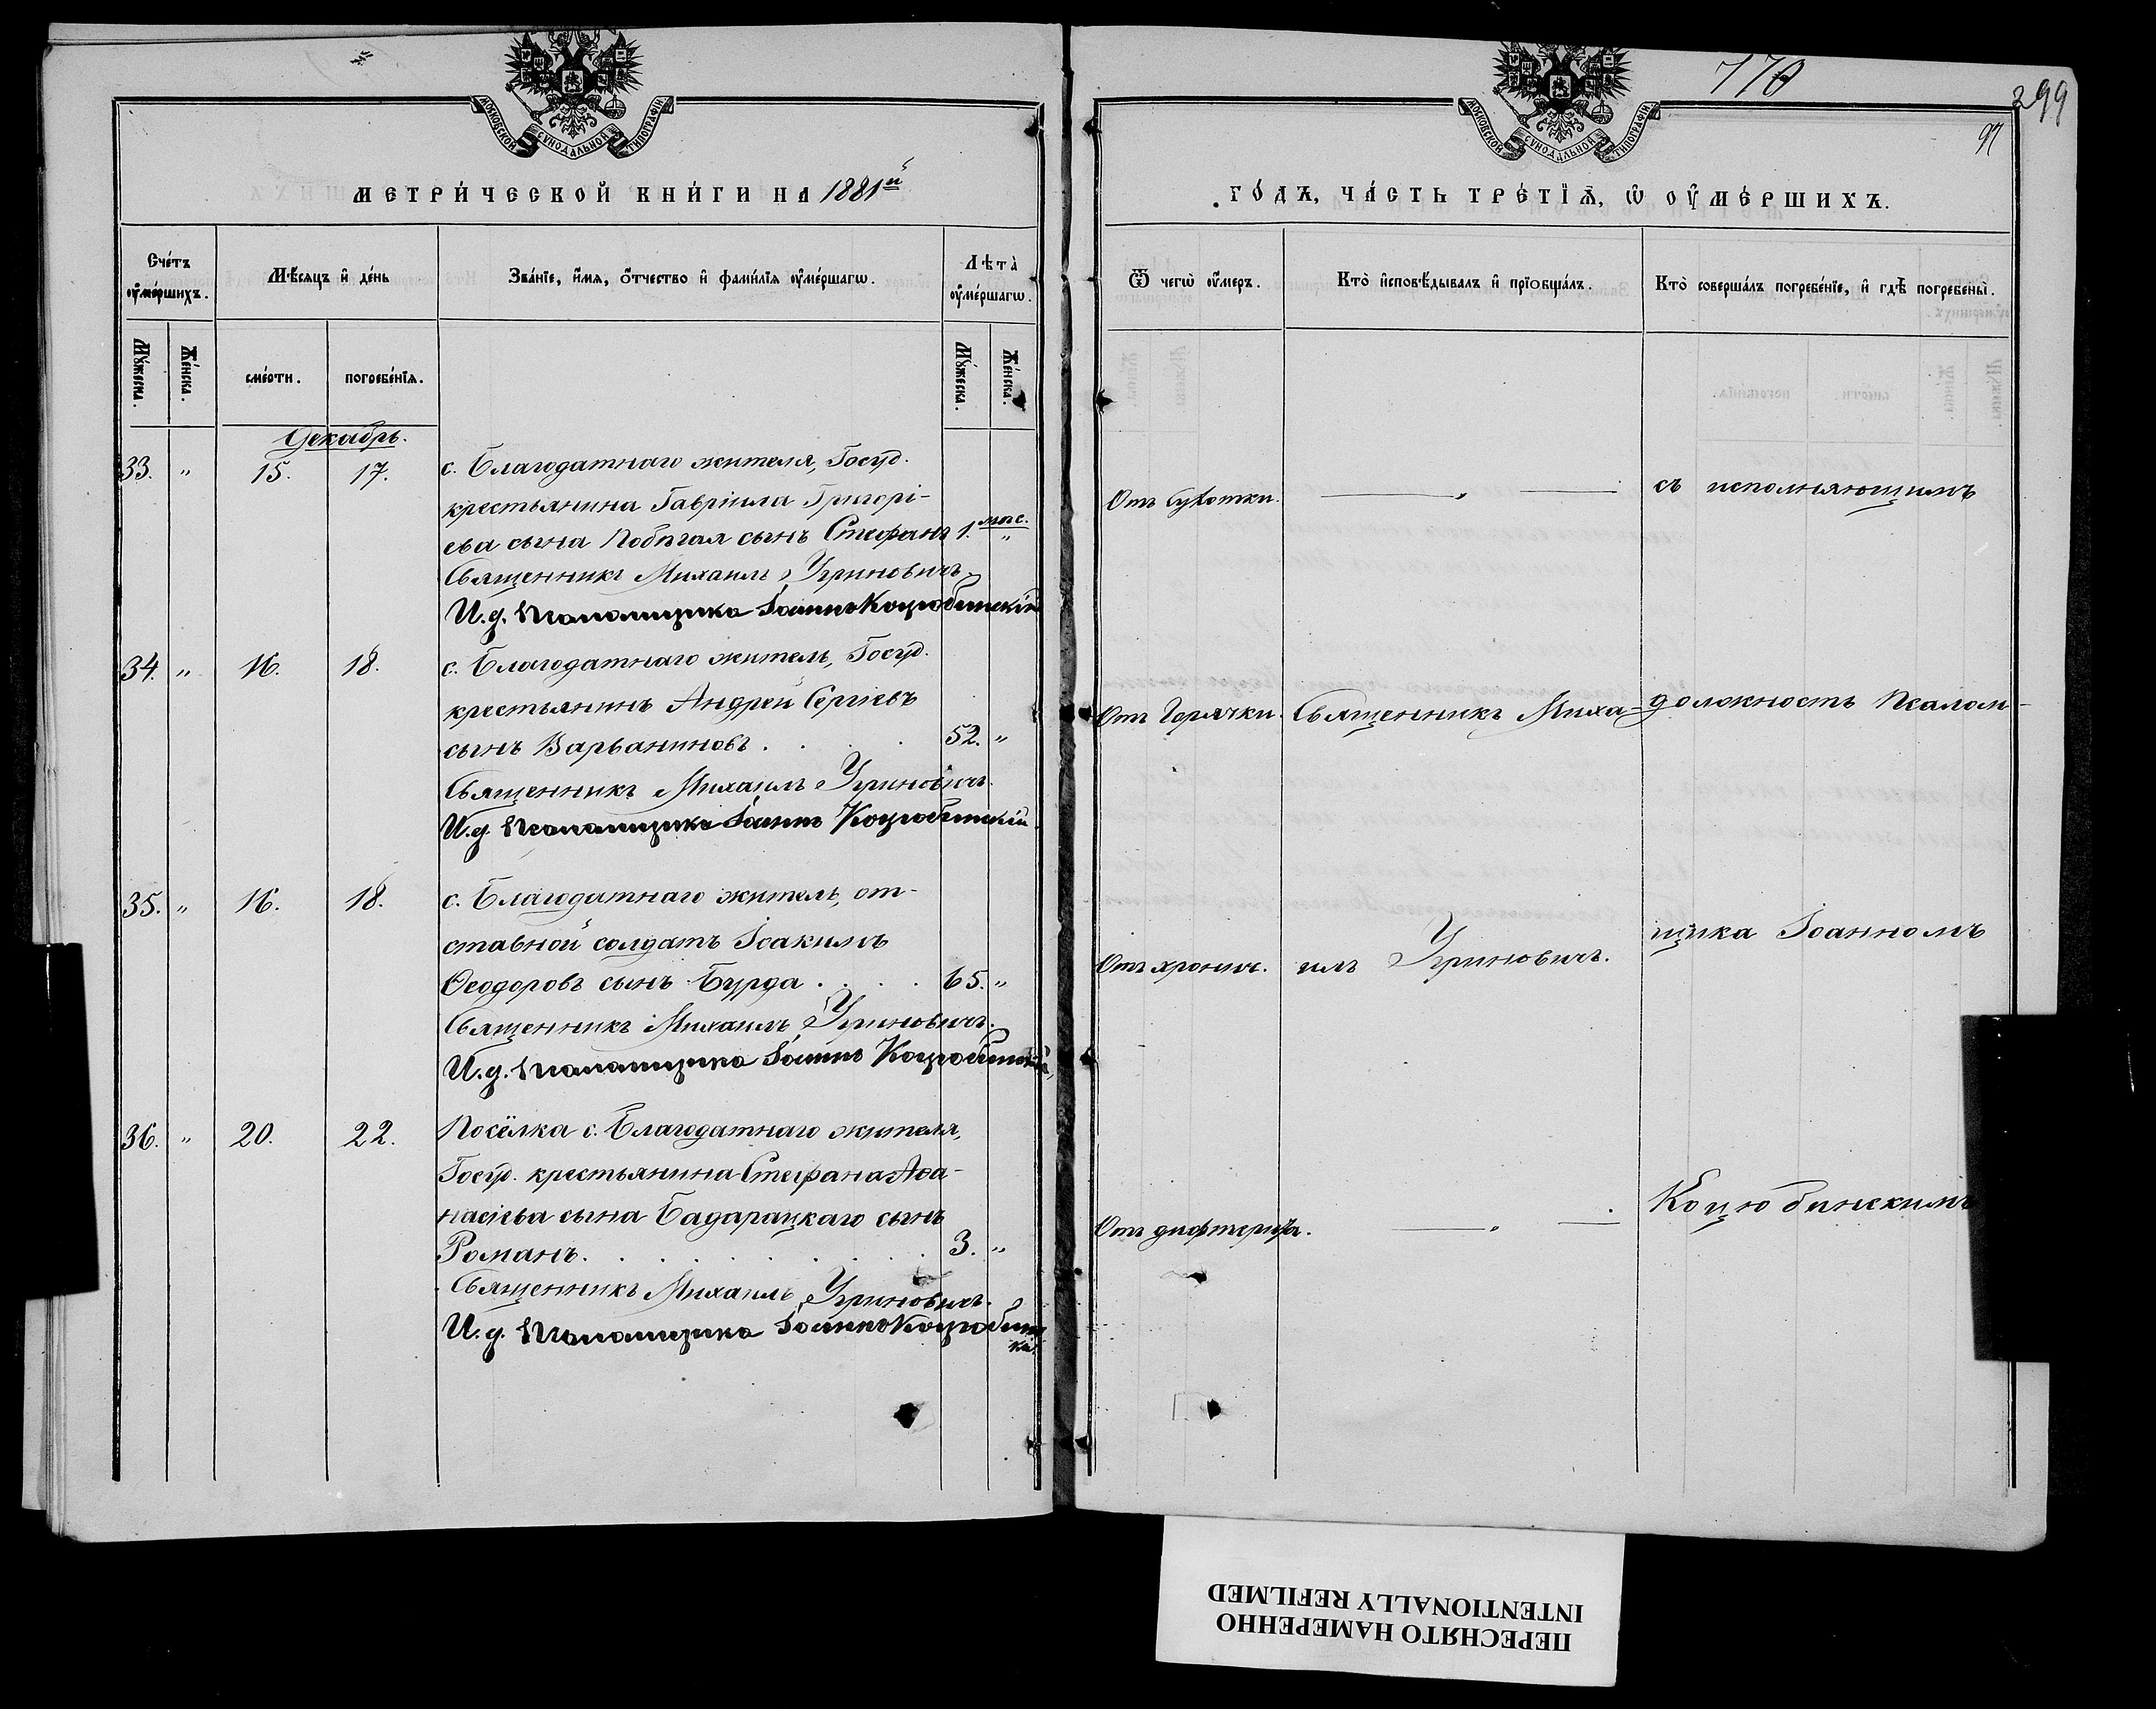 МОСКОВСКОЙ СѴНОДАЛЬНОЙ ТИПОГРАФІИ
МЕТРИ́ЧЕСКОЙ КНИ́ГИ НА 1881й
Сче́тъ ᲂу҆ме́ршихъ.
Мѣ́сяцъ и҆ де́нь
Зва́нїе, и҆́мя, ѻ҆́тчество и҆ фами́лїя ᲂу҆ме́ршагѡ.
Лѣта̀ ᲂу҆ме́ршагѡ.
Мꙋ́жеска.
Же́нска.
сме́рти.
погребе́нїя.
Мꙋ́жеска.
Же́нска.
Декабрь.
33. " 15. 17. с. Благодатнаго жителя, Госуд.
крестьянина Гавріила Григорі-
ева сына Побѣгая сынъ Стефанъ 1. мѣс. "
Священникъ Михаилъ Угриновичъ.
И. д. Псаломщика Іоаннъ Коцюбинскій
34. " 16. 18. с. Благодатнаго житель, Госуд.
крестьянинъ Андрей Сергіевъ
сынъ Варваниновъ . . . . 52. "
Священникъ Михаилъ Угриновичъ.
И. д. Псаломщика Іоаннъ Коцюбинскій.
35. " 16. 18. с. Благодатнаго житель, от-
ставной солдатъ Іоакимъ
Ѳеодоровъ сынъ Бурда . . . . 65. "
Священникъ Михаилъ Угриновичъ.
И. д. Псаломщика Іоаннъ Коцюбинскій,
36. " 20. 22. Посёлка с. Благодатнаго жителя,
Госуд. крестьянина Стефана Аѳа-
насіева сына Бадарацкаго сынъ
Романъ. . . . . . . . 3. "
Священникъ Михаилъ Угриновичъ.
И. д. Псаломщика Іоаннъ Коцюбин
кій.
299
97
МОСКОВСКОЙ СѴНОДАЛЬНОЙ ТИПОГРАФІИ
ГО́ДЪ, ЧА́СТЬ ТРЕ́ТЇѦ, Ѡ ОУ҆МЕ́РШИХЪ.
Ѿ чегѡ̀ ᲂу҆́меръ.
Кто̀ и҆сповѣ́дывалъ и҆ прїѡбща́лъ.
Кто̀ соверша́лъ погребе́нїе, и҆ гдѣ̀ погребены̀.
Отъ Сухотки. — " — съ исполняющимъ
Отъ Горячки. Священникъ Миха- должность Псалом-
Отъ хронич. илъ Угриновичъ. щика Іоанномъ
Отъ дифтерита. — " — Коцюбинскимъ
ПЕРЕСНЯТО НАМЕРЕННО
INTENTIONALLY REFILMED